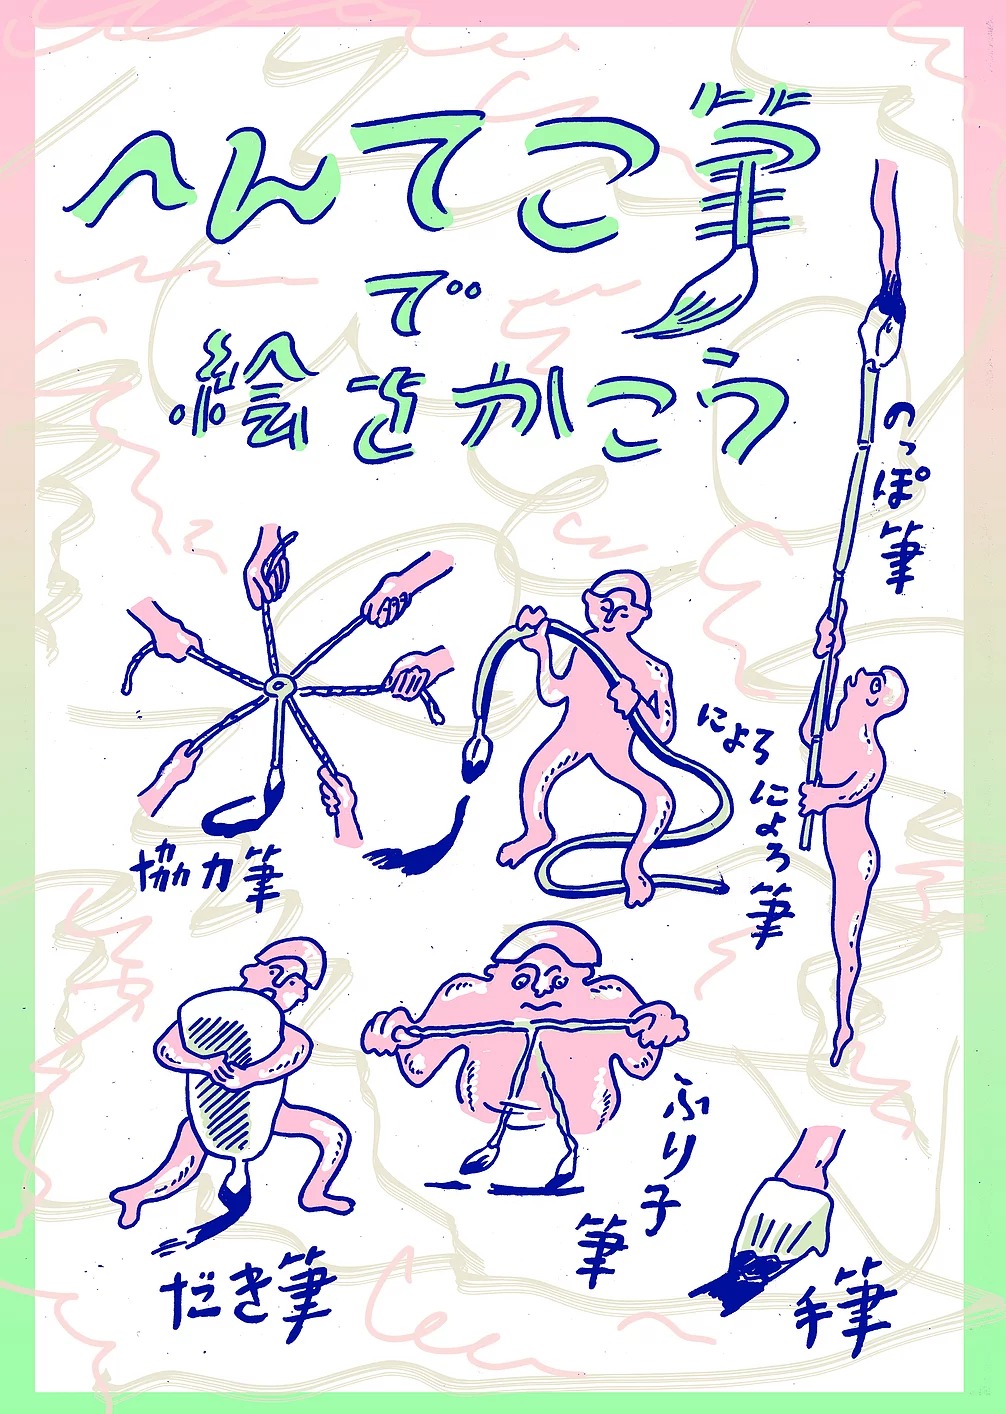 へんてこ筆
で
絵をかこう
のっぽ筆
協力筆
によろ
によろ筆
だき筆
ふり子
筆
手筆